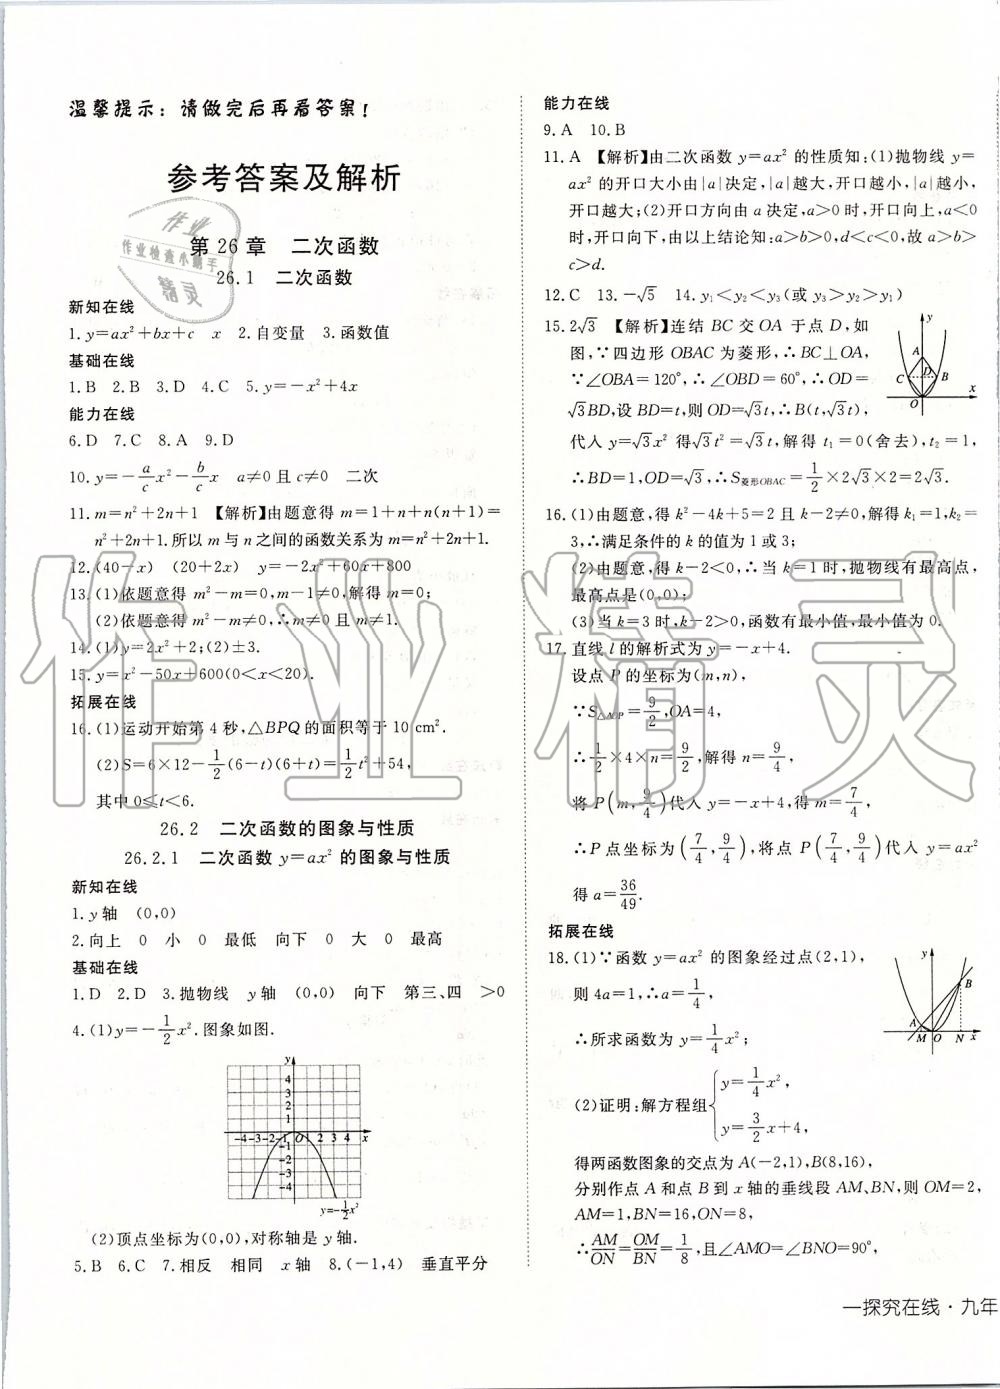 温馨提示：请做完后再看答案！
参考答案及解析
第26章 二次函数
26.1 二次函数
新知在线
1.y=ax²+bx+c x 2.自变量 3.函数值
基础在线
1.B 2.B 3.D 4.C 5.y=-x²+4x
能力在线
6.D 7.C 8.A 9.D
10.y=-a/c x²-b/c x a≠0且c≠0 二次
11.m=n²+2n+1 【解析】由题意得m=1+n+n(n+1)=
n²+2n+1.所以m与n之间的函数关系为m=n²+2n+1.
12.(40-x) (20+2x) y=-2x²+60x+800
13.(1)依题意得m²-m=0,m-1≠0,解得m=0;
(2)依题意得m²-m≠0,∴m≠0且m≠1.
14.(1)y=2x²+2;(2)±3.
15.y=x²-50x+600(0<x<20).
拓展在线
16.(1)运动开始第4秒,△BPQ的面积等于10 cm².
(2)S=6×12-1/2(6-t)(6+t)=1/2t²+54,
其中0≤t<6.
26.2 二次函数的图象与性质
26.2.1 二次函数y=ax²的图象与性质
新知在线
1.y轴 (0,0)
2.向上 0 小 0 最低 向下 0 大 0 最高
基础在线
1.D 2.D 3.抛物线 y轴 (0,0) 向下 第三、四 >0
4.(1)y=-1/2x².图象如图.
y
4
3
2
1
-4-3-2-1 O 1 2 3 4 x
-1
-2
-3
-4
y=-1/2x²
(2)顶点坐标为(0,0),对称轴是y轴.
5.B 6.C 7.相反 相同 x轴 8.(-1,4) 垂直平分
能力在线
9.A 10.B
11.A 【解析】由二次函数y=ax²的性质知:(1)抛物线y=
ax²的开口大小由|a|决定,|a|越大,开口越小,|a|越小,
开口越大;(2)开口方向由a决定,a>0时,开口向上,a<0
时,开口向下,由以上结论知:a>b>0,d<c<0,故a>b>
c>d.
12.C 13.-√5 14.y₁<y₂<y₃(或y₃>y₂>y₁)
15.2√3 【解析】连结BC交OA于点D,如
图,∵四边形OBAC为菱形,∴BC⊥OA,
∵∠OBA=120°,∴∠OBD=60°,∴OD=
√3BD,设BD=t,则OD=√3t,∴B(t,√3t),
代入y=√3x²得√3t²=√3t,解得t₁=0(舍去),t₂=1,
∴BD=1,OD=√3,∴S菱形OBAC=1/2×2√3×2=2√3.
y
A
C D B
O x
16.(1)由题意,得k²-4k+5=2且k-2≠0,解得k₁=1,k₂=
3,∴满足条件的k的值为1或3;
(2)由题意,得k-2<0,∴当k=1时,抛物线有最高点,
最高点是(0,0);
(3)当k=3时,k-2>0,函数有最小值,最小值为0.
17.直线l的解析式为y=-x+4.
设点P的坐标为(m,n),
∵S△AOP=9/2,OA=4,
∴1/2×4×n=9/2,解得n=9/4,
将P(m,9/4)代入y=-x+4,得m=7/4,
∴P点坐标为(7/4,9/4),将点P(7/4,9/4)代入y=ax²
得a=36/49.
拓展在线
18.(1)∵函数y=ax²的图象经过点(2,1),
则4a=1,∴a=1/4,
∴所求函数为y=1/4x²;
y
B
A
M O N x
(2)证明:解方程组{y=1/4x²,
y=3/2x+4,
得两函数图象的交点为A(-2,1),B(8,16),
分别作点A和点B到x轴的垂线段AM、BN,则OM=2,
AM=1,BN=16,ON=8,
∴AM/ON=OM/BN=1/8,且∠AMO=∠BNO=90°,
一探究在线·九年
作业精灵
作业
作业检查小帮手
精灵